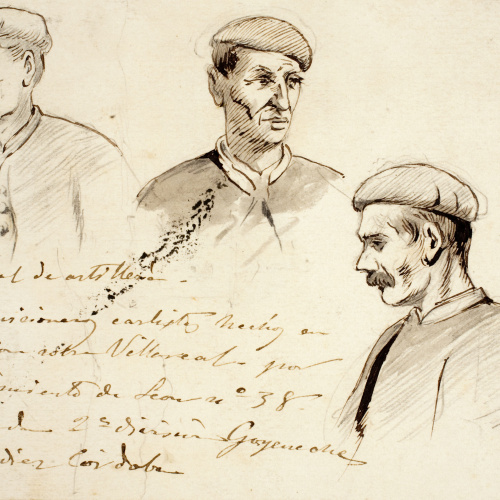 al de artilleria
prisioneros carlistas hechos en
sobre Villareal por
imiento de Leon nº 38.
de 2ª division Goyeneche
diez Cordoba